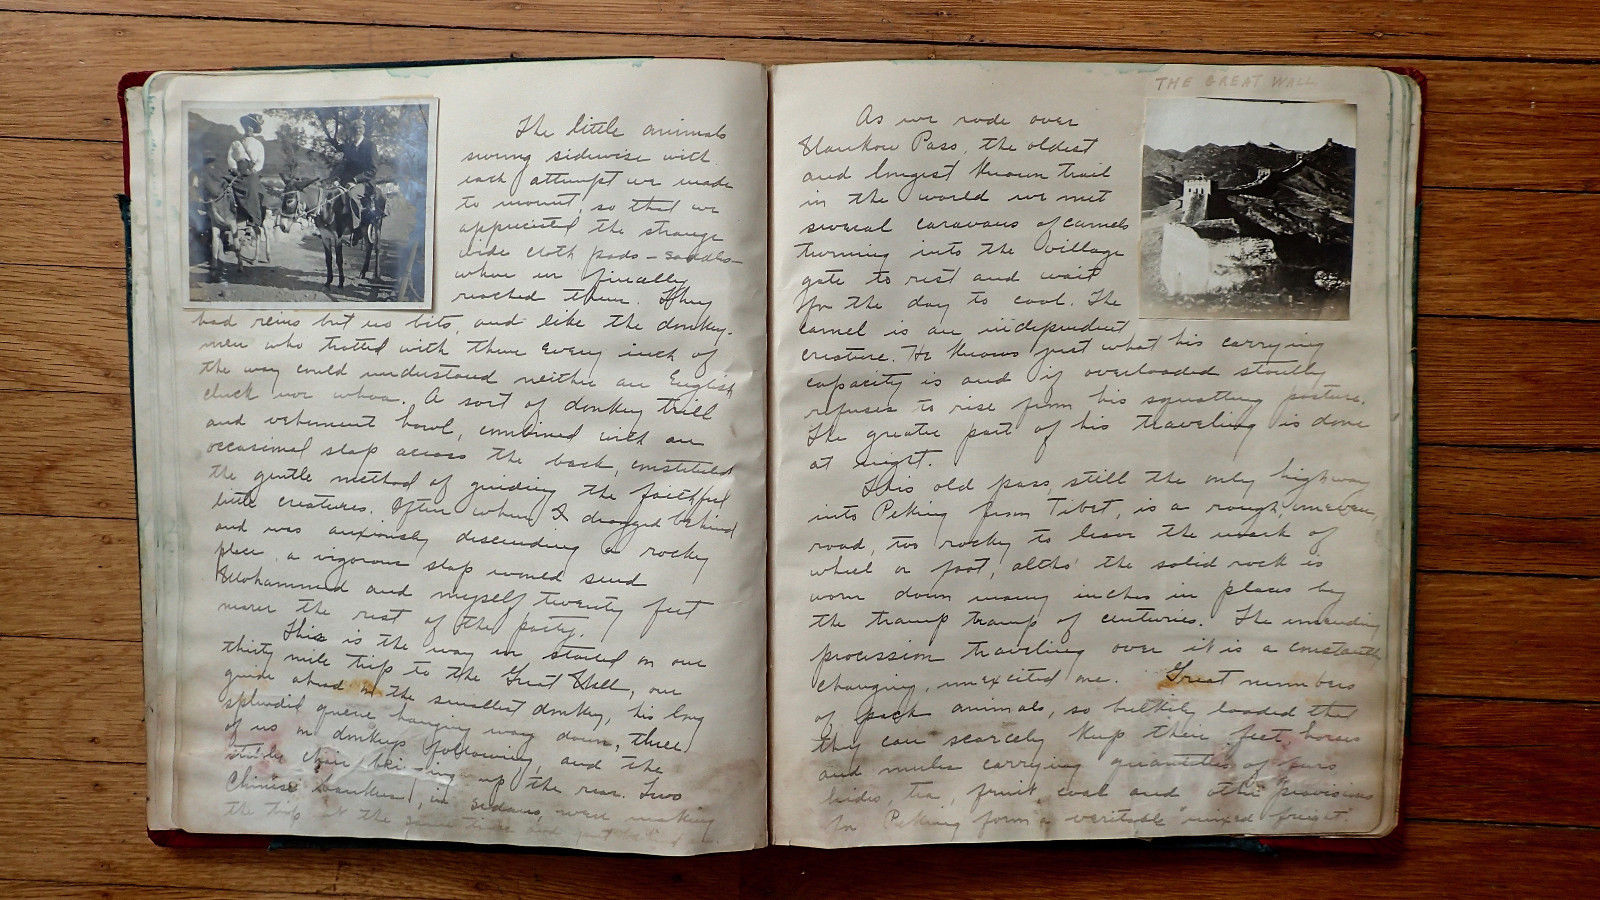 The little animals
swung sidewise with
each attempt we made
to mount, so that we
appreciated the strange
wide cloth pads - saddles -
when we finally
reached them. They
had reins but no bits, and like the donkey-
men who trotted with them every inch of
the way could understand neither an English
cluck nor whoa. A sort of donkey trill
and vehement howl, combined with an
occasional slap across the back, constituted
the gentle method of guiding the faithful
little creatures. Often when I dragged behind
and was anxiously descending a rocky
place, a vigorous slap would send
Mohammed and myself twenty feet
nearer the rest of the party.
This is the way we started on our
thirty mile trip to the Great Wall, our
guide ahead on the smallest donkey, his long
splendid queue hanging way down, three
of us on donkeys following, and the
chair bringing up the rear. Two
Chinese bankers, in sedans, were making
the trip at the same time and
THE GREAT WALL
As we rode over
Nankow Pass, the oldest
and longest known trail
in the world we met
several caravans of camels
turning into the village
gate to rest and wait
for the day to cool. The
camel is an independent
creature. He knows just what his carrying
capacity is and if overloaded stoutly
refuses to rise from his squatting posture.
The greater part of his traveling is done
at night.
This old pass, still the only highway
into Peking from Tibet, is a rough, uneven,
road, too rocky to leave the mark of
wheel or foot, altho' the solid rock is
worn down many inches in places by
the tramp tramp of centuries. The unending
procession traveling over it is a constantly
changing, unexcited one. Great numbers
of pack animals, so bulkily loaded that
they can scarcely keep their feet, horses
and mules carrying quantities of furs
hides, tea, fruit, coal and other provisions
for Peking form a veritable "mixed freight".